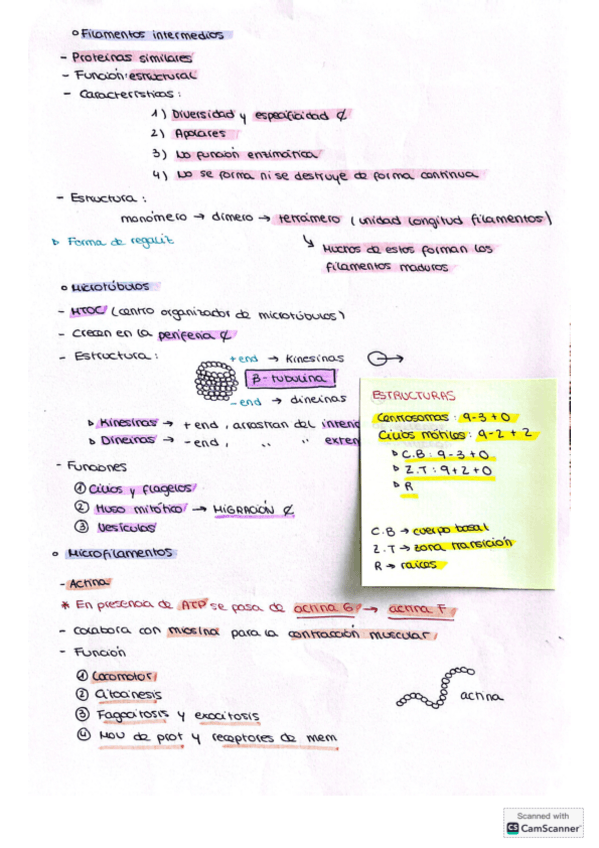 o Filamentos intermedios
- Proteínas similares
- Función: estructural
- Características:
1) Diversidad y especificidad ¢
2) Apolares
3) No función enzimática
4) No se forma ni se destruye de forma continua
- Estructura:
monómero → dímero → tetrámero (unidad longitud filamentos)
▷ Forma de regaliz
↳ Muchos de estos forman los
filamentos maduros
o Microtúbulos
- MTOC (centro organizador de microtúbulos)
- Crecen en la periferia ¢
- Estructura:
+ end → kinesinas
β-tubulina
- end → dineinas
▷ Kinesinas → + end, arrastran del
▷ Dineinas → - end, " "
- Funciones
① Cilios y flagelos
② Huso mitótico → MIGRACIÓN ¢
③ Vesículas
ESTRUCTURAS
Centrosomas: 9-3+0
Cilios mótiles: 9-2+2
▷ C.B: 9-3+0
▷ Z.T: 9+2+0
▷ R
C.B → cuerpo basal
Z.T → zona transición
R → raíces
o Microfilamentos
- Actina
* En presencia de ATP se pasa de actina G → actina F
- Colabora con miosina para la contracción muscular
- Función
① Locomotor
② Citocinesis
③ Fagocitosis y exocitosis
④ Mov de prot y receptores de mem
actina
Scanned with
CS CamScanner